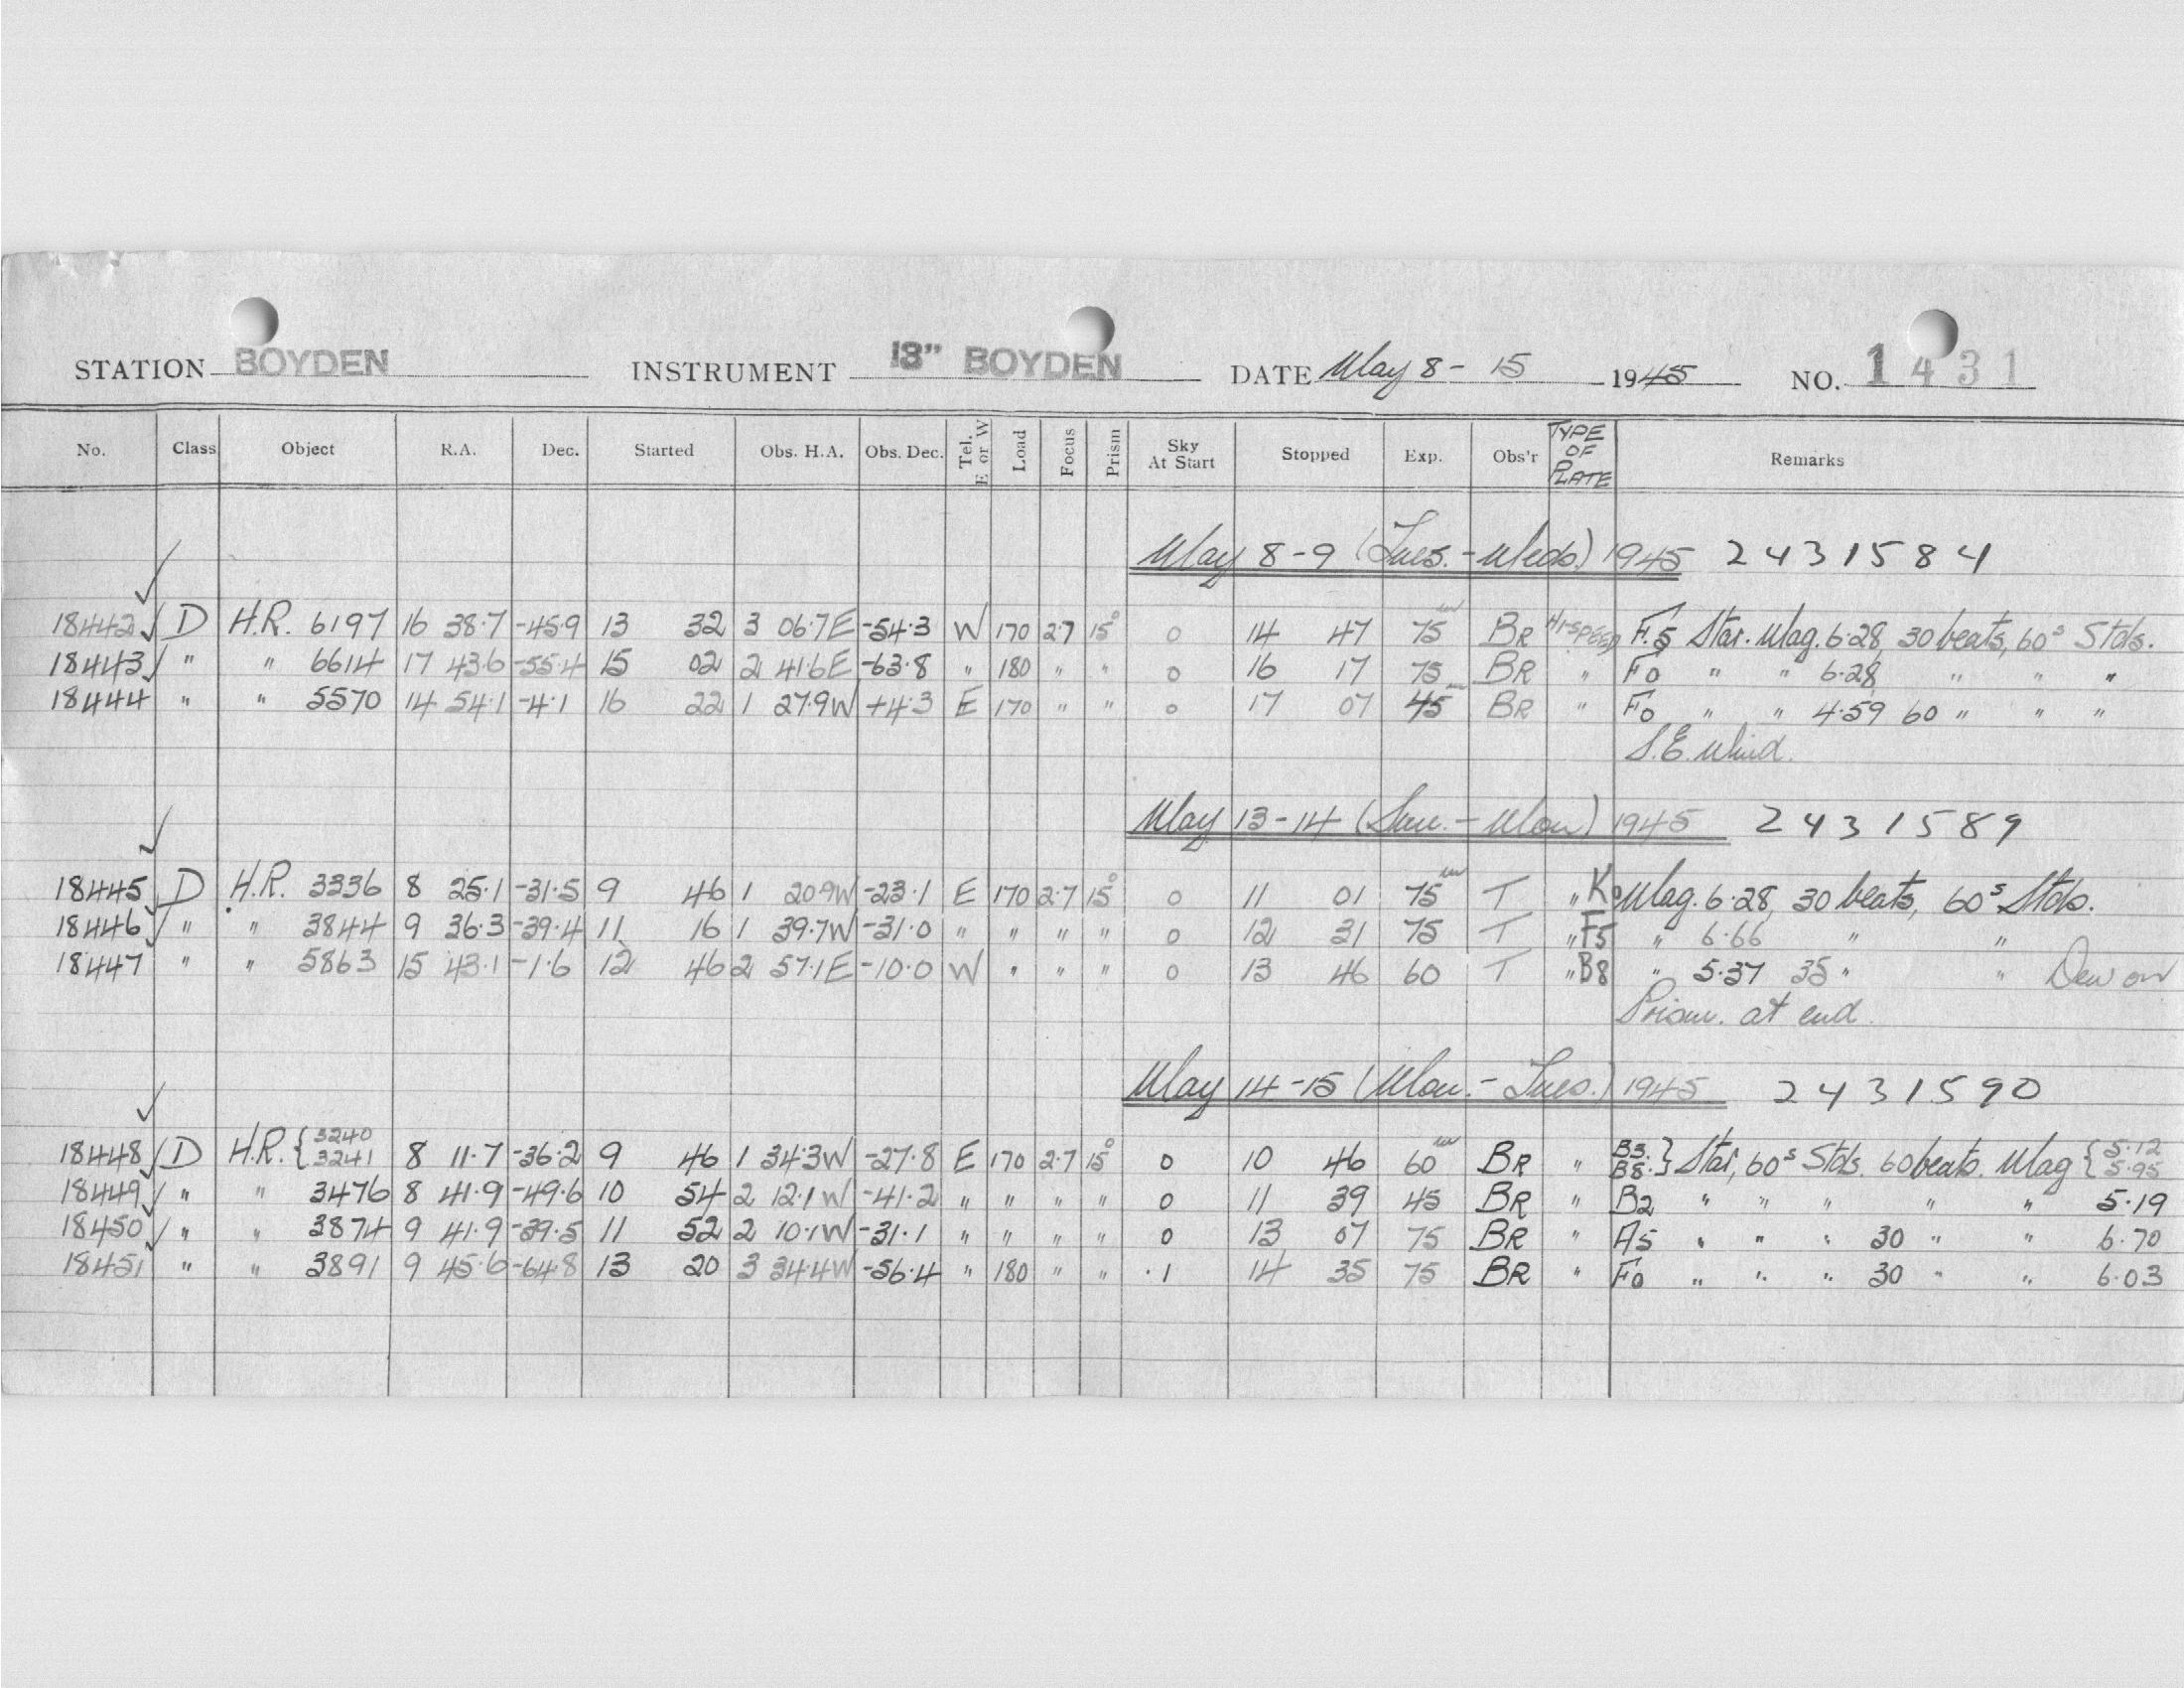 STATION BOYDEN INSTRUMENT 13" BOYDEN DATE May 8 - 15 1945 NO. 1431
No. Class Object R.A. Dec. Started Obs. H.A. Obs. Dec. Tel. E or W Load Focus Prism Sky At Start Stopped Exp. Obs'r TYPE OF PLATE Remarks
May 8-9 (Tues.-Weds.) 1945 2431584
18442 D H.R. 6197 16 38.7 -45.9 13 32 3 06.7E -54.3 W 170 2.7 15° 0 14 47 75m BR HI-SPEED F.5 Star. Mag. 6.28, 30 beats, 60s Stds.
18443 " " 6614 17 43.6 -55.4 15 02 2 41.6E -63.8 " 180 " " 0 16 17 75 BR " F0 " " 6.28 " " "
18444 " " 5570 14 54.1 -4.1 16 22 1 27.9W +4.3 E 170 " " 0 17 07 45 BR " F0 " " 4.59 60 " " "
S.E. Wind.
May 13-14 (Sun.-Mon) 1945 2431589
18445 D H.R. 3336 8 25.1 -31.5 9 46 1 20.9W -23.1 E 170 2.7 15° 0 11 01 75m T " K0 Mag. 6.28, 30 beats, 60s Stds.
18446 " " 3844 9 36.3 -39.4 11 16 1 39.7W -31.0 " " " " 0 12 31 75 T " F5 " 6.66 " "
18447 " " 5863 15 43.1 -1.6 12 46 2 57.1E -10.0 W " " " 0 13 46 60 T " B8 " 5.37 35 " " Dew on
Prism. at end.
May 14-15 (Mon.-Tues.) 1945 2431590
18448 D H.R. { 3240 3241 8 11.7 -36.2 9 46 1 34.3W -27.8 E 170 2.7 15° 0 10 46 60m BR " B3. B8. } Star, 60s Stds. 60 beats. Mag { 5.12 5.95
18449 " " 3476 8 41.9 -49.6 10 54 2 12.1W -41.2 " " " " 0 11 39 45 BR " B2 " " " " " 5.19
18450 " " 3874 9 41.9 -39.5 11 52 2 10.1W -31.1 " " " " 0 13 07 75 BR " A5 " " " 30 " " 6.70
18451 " " 3891 9 45.6 -64.8 13 20 3 34.4W -56.4 " 180 " " .1 14 35 75 BR " F0 " " " 30 " " 6.03